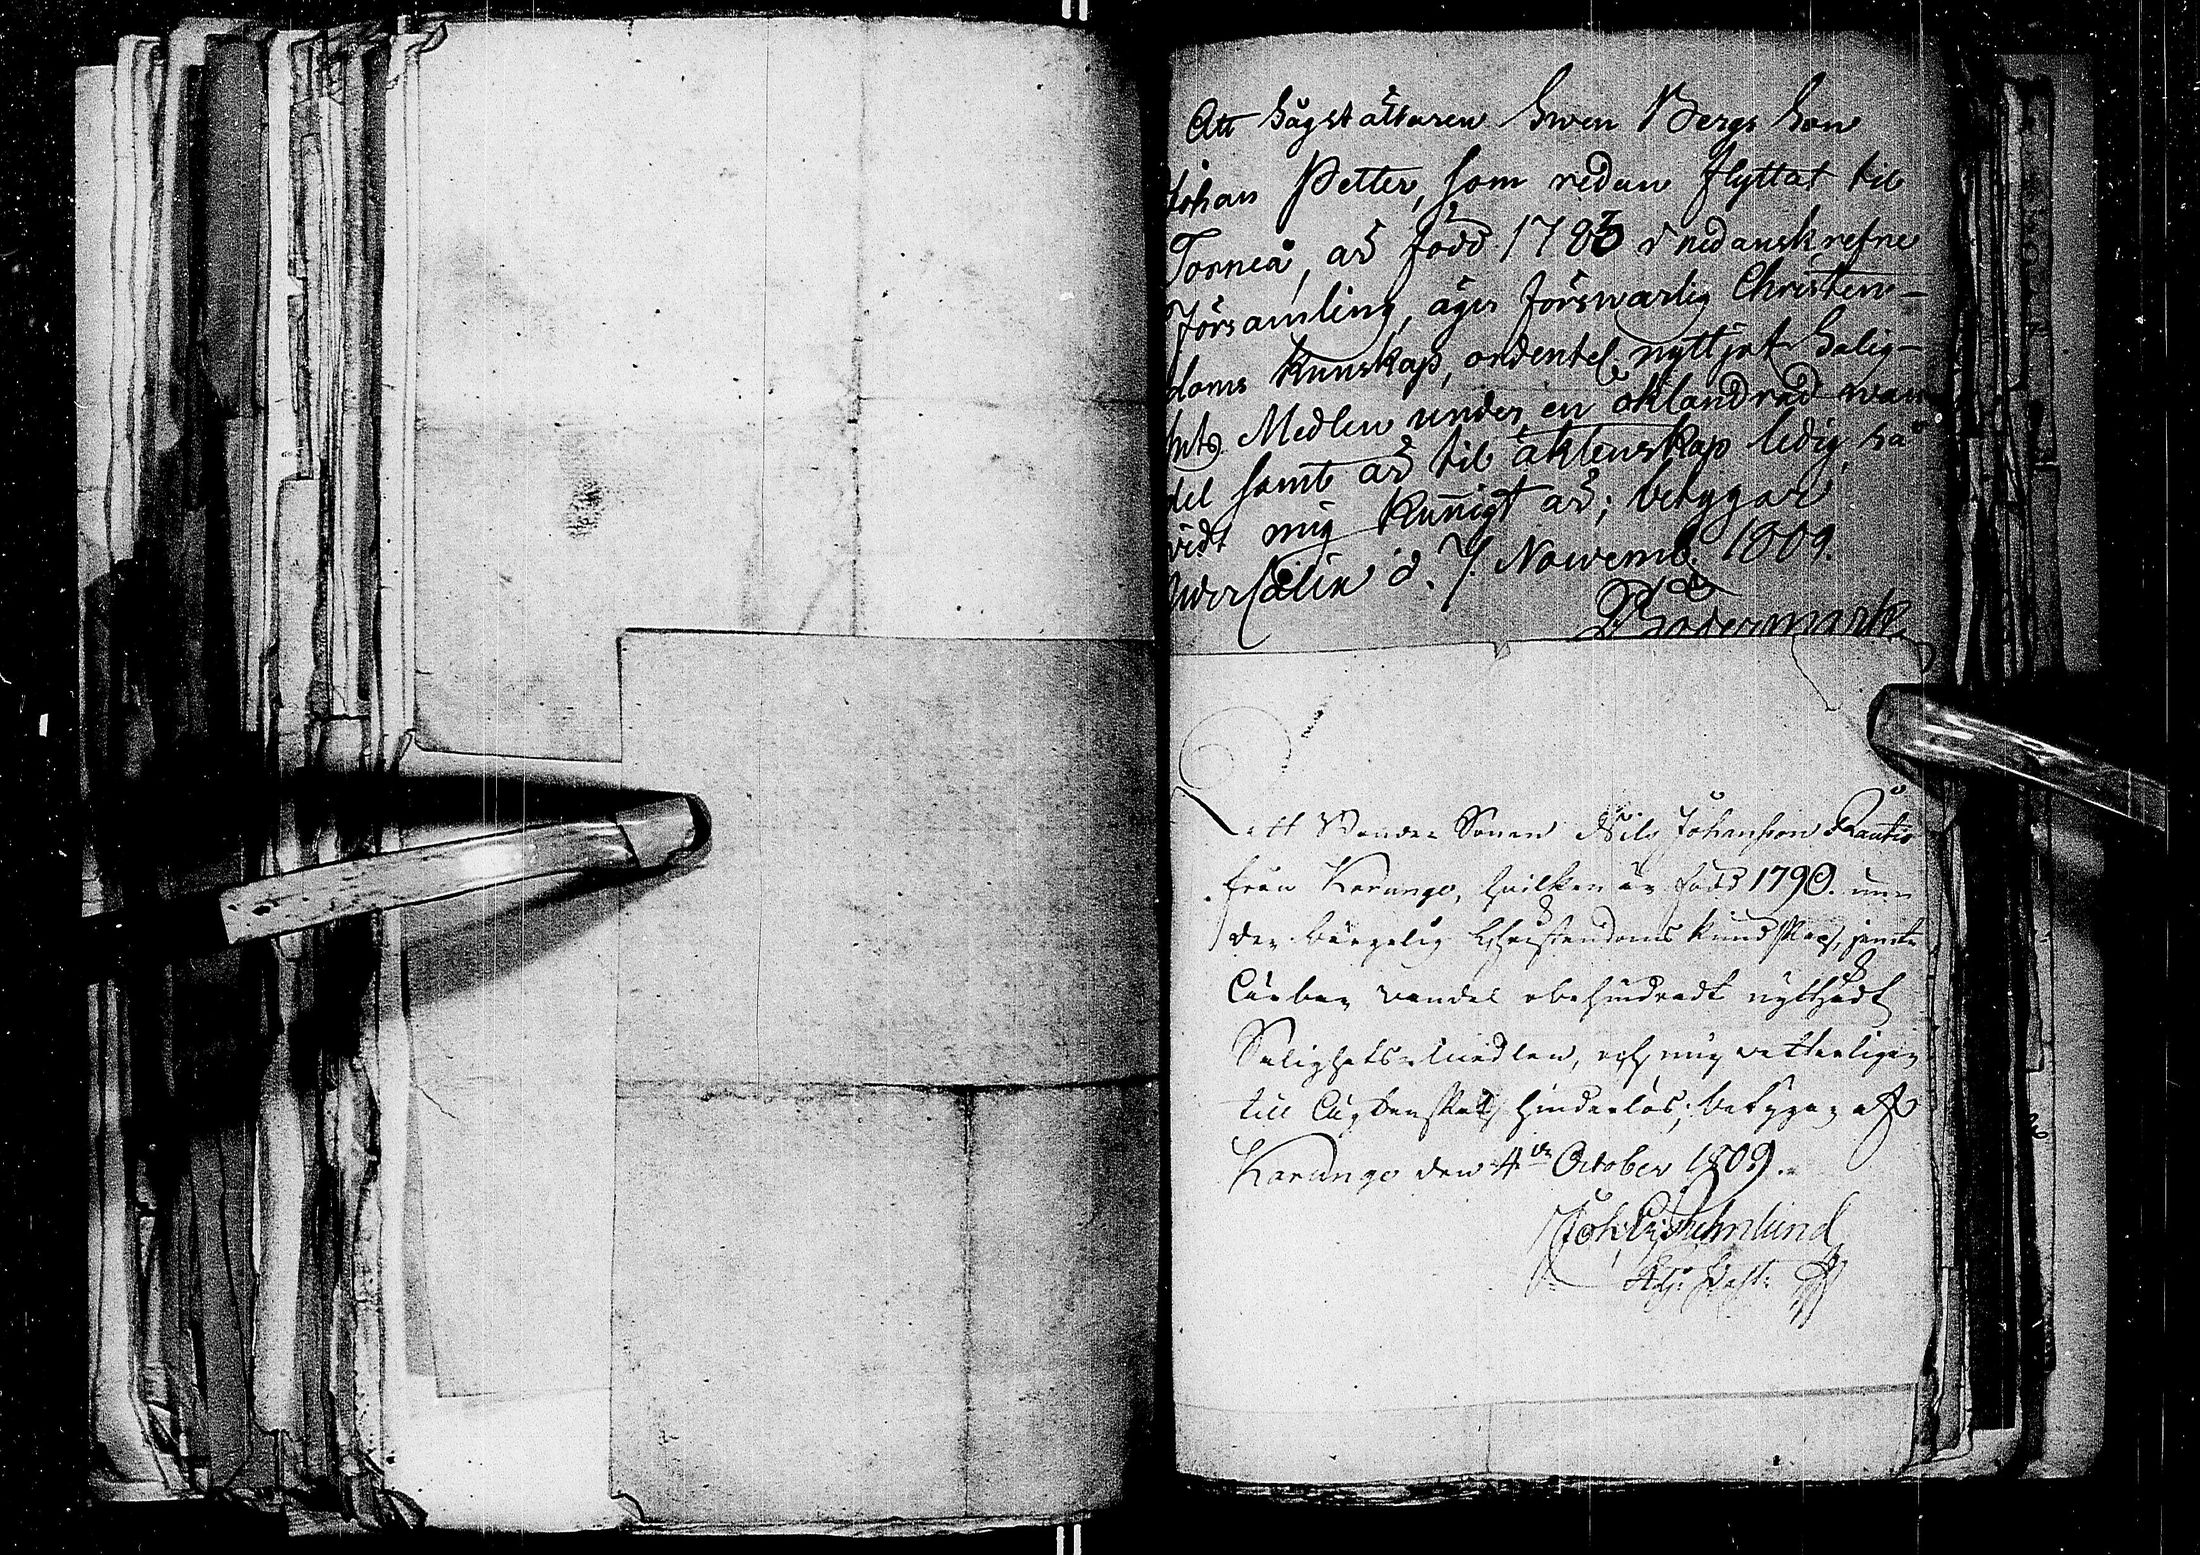 Att Sågställaren Swen Bergs Son
Johan Petter, som redan flyttat til
Torneå, är född 1783 i nedanskrefne
Församling, äger förswarlig Christen-
doms Kunskap, ordentel. nyttjat Salig-
hets Medlen under en oklandrad wan
del samt är til äktenskap ledig, så
vidt mig kunnigt är; betygar
d. 7. Novemb. 1809.
Bodermark
Att Bonde Sonen Nils Johansson Rautio
från Karungi, hvilken är född 1790. un-
der börgelig Christendoms kundskap, jemte
Ärbar vandel obehindradt nytthiadt
Salighets Medlen, och mig vetterligen
till Ächtenskap hinderlös; betygar af
Karungi den 4de October 1809.
Joh. Malmlund
Adj: Past: